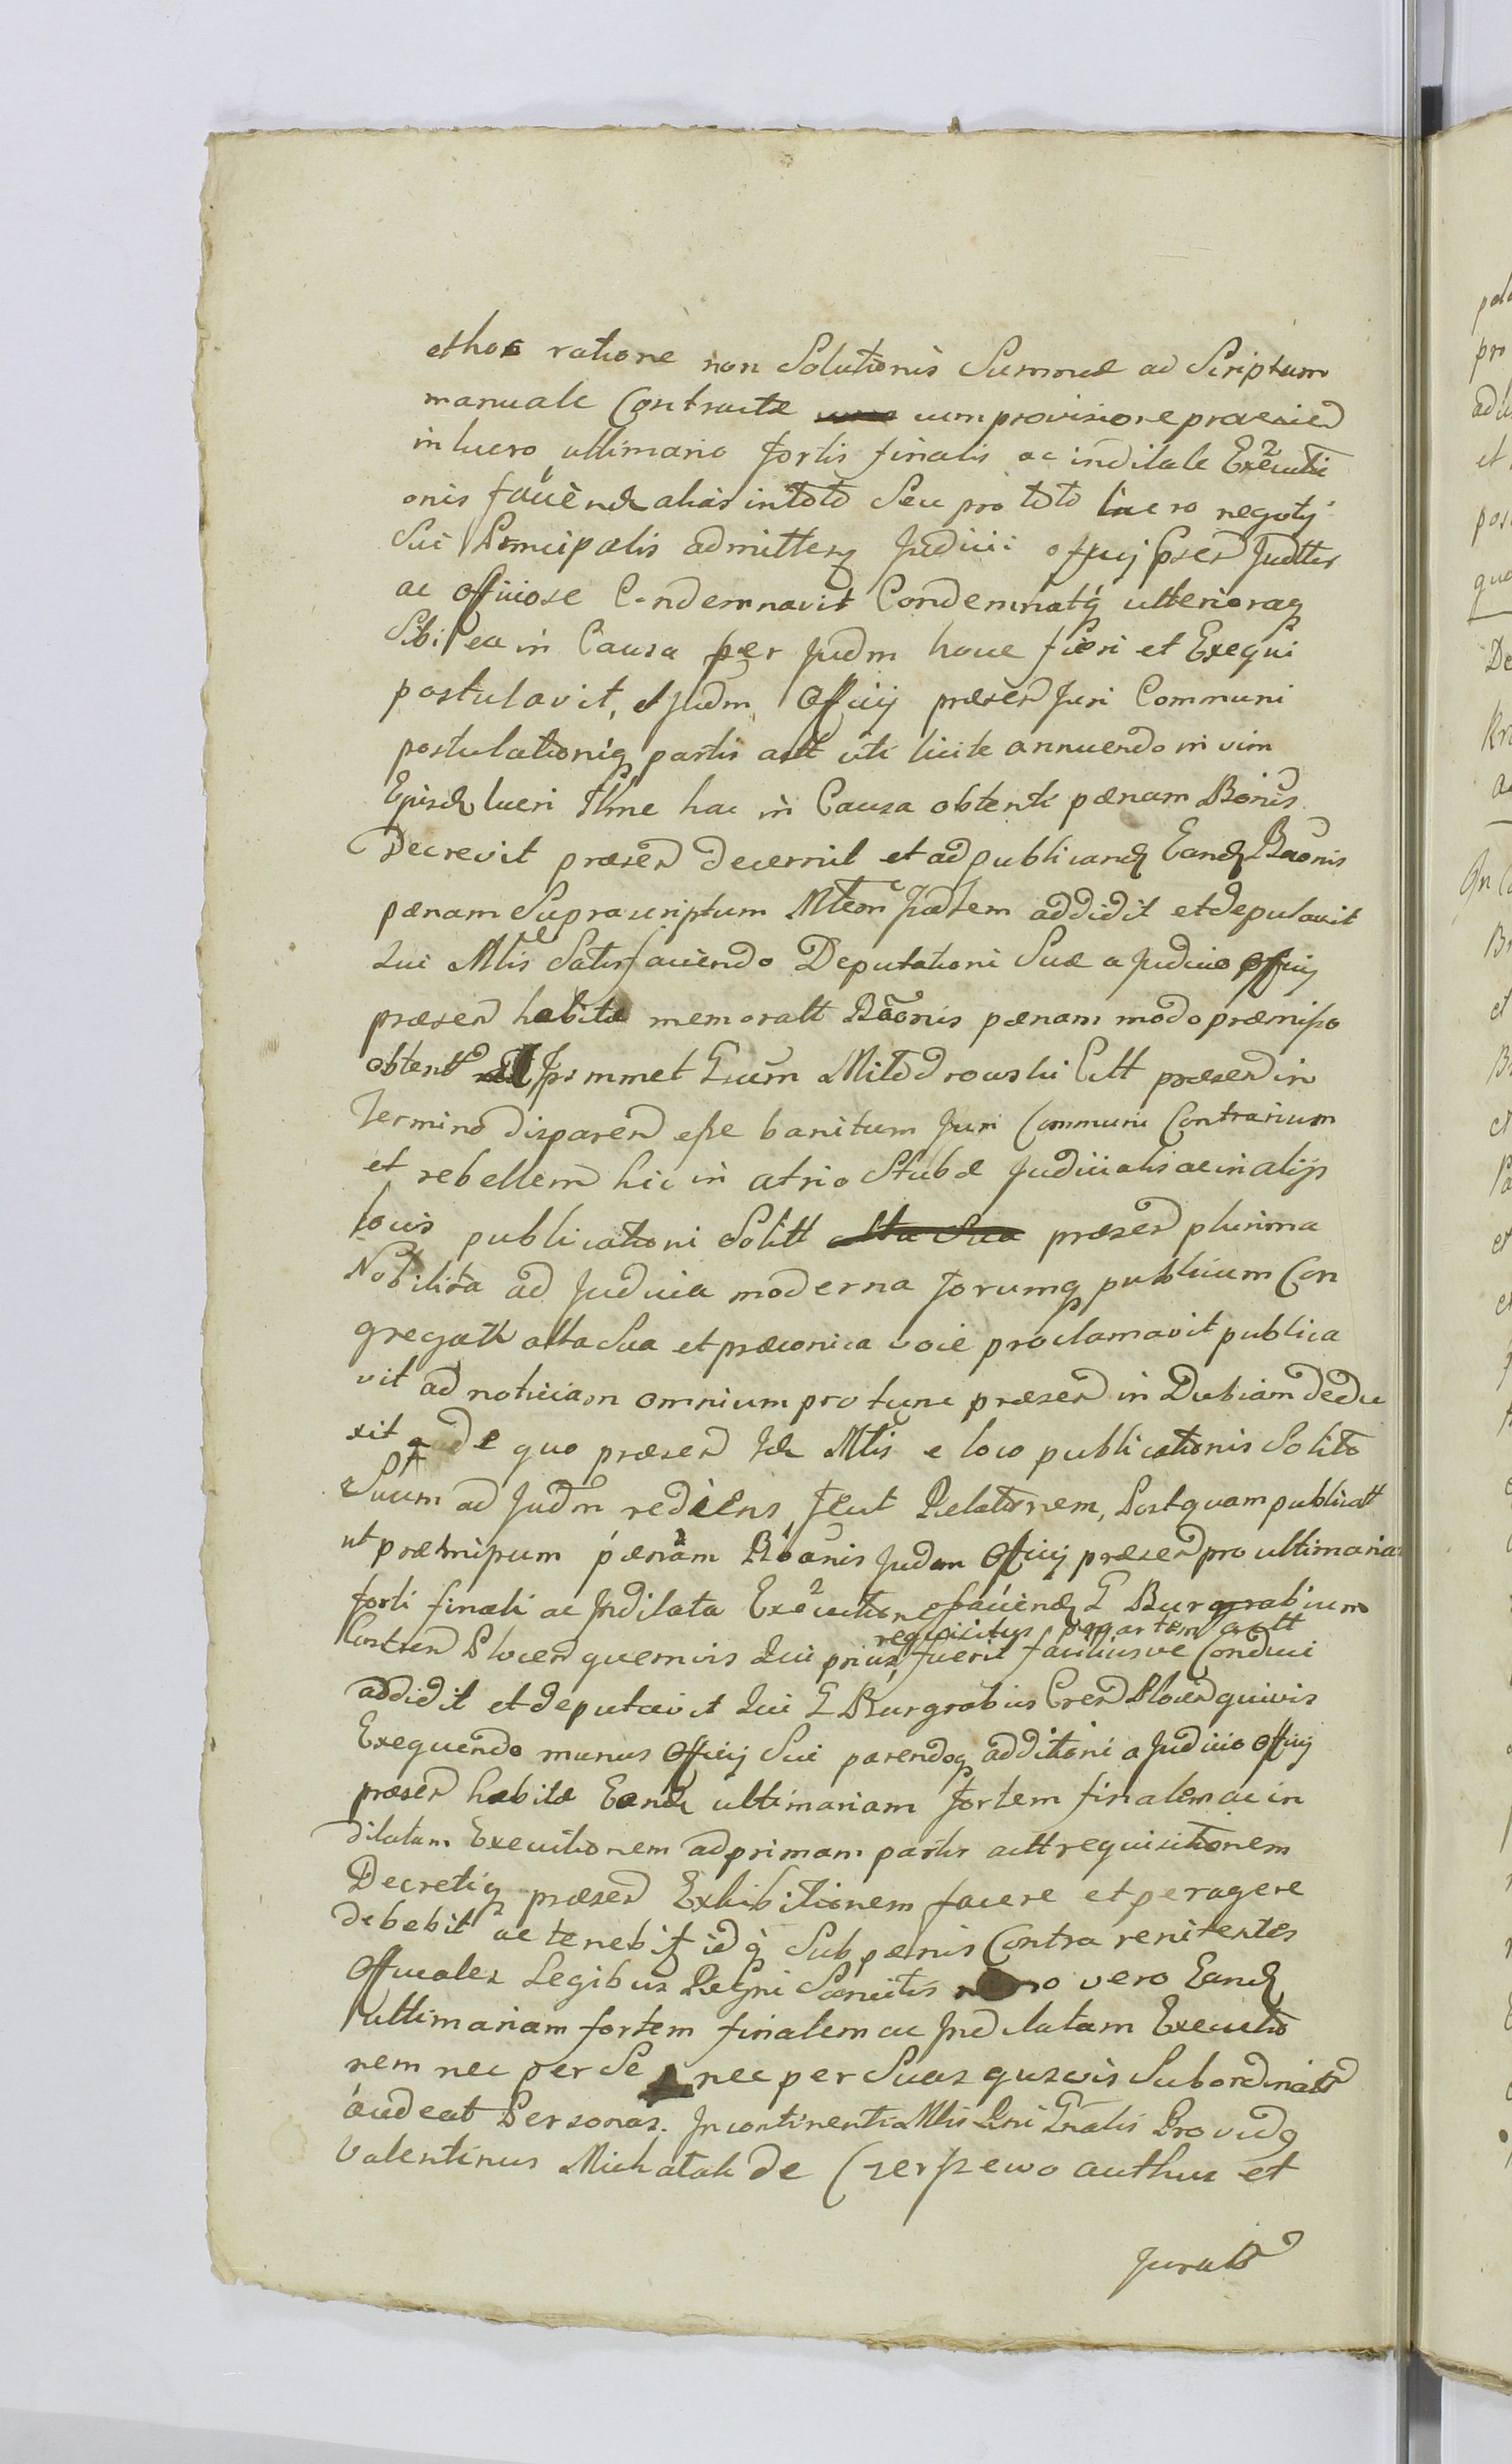 et hoc ratione non Solutionis Summæ ad Scriptum
manuale Contractæ cum provisione præsen
in lucro ultimario fortis finalis ac inditalæ Executi
onis faciend alias in toto Seu pro toto lucro negotij
Sui Principalis admitten Judicii officij præsen Judltr
ac officiose Condemnavit Condemnatq ulterioraq
Sibi ea in Causa per Judm hocce fieri et Exequi
postulavit, et Judm Officij præsen Juri Communi
postulationiq partis actt uti licite annuendo in vim
Ejusd lucri Thne hac in Causa obtenti pænam Bonis
Decrevit præsen decernit et ad publicand Eand Baonis
pænam Suprascriptum Mtem Jtatem addidit et deputavit
Qui Mlis Satisfaciendo Deputationi Suæ a Judicio Officij
præsen habitæ memoratt Baonis pænam modo præmisso
obtent Ipsummet Gsum Mitodrowski Citt præsen in
Termino disparen esse banitum Juri Communi Contrarium
et rebellem hic in atrio Stubæ Judicialis ac in alijs
locis publicationi Solitt præsen plurima
Nobilita ad Judicia moderna forumq publicum Con
gregatt alta Sua et præconica voce proclamavit publica
vit ad noticiam omnium pro tunc præsen in Dubiam dedu
xit de quo præsen Id Mlis e loco publicationis Solito
Suum ad Judm rediens fecit Relationem, Postquam publicatt
ut præmissum pænam Baonis Judm Officij præsen pro ultimaria
forti finali ac Indilata Executione faciend G Burgrabium
requisitus per partem actt
Castren Plocen quemvis Qui prius fuerit faciliusve Conduci
addidit et deputavit Qui G Burgrabius Cren Plocen quivis
Exequendo munus Officij Sui parendoq additioni a Judicio Officij
præsen habitæ Eand ultimariam fortem finalem ac in
dilatam Executionem ad primam partis actt requisitionem
Decretiq præsen Exhibitionem facere et peragere
debebit ac tenebit idq Sub pænis Contra renitentes
Officiales Legibus Regni Sancitis vero Eand
ultimariam fortem finalem ac Indilatam Executio
nem nec per Se nec per Suas quasvis Subordinatt
audeat Personas. Incontinenti Mlis Rni Gnalis Providq
Valentinus Michatak de Czerszewo authus et
Juratt